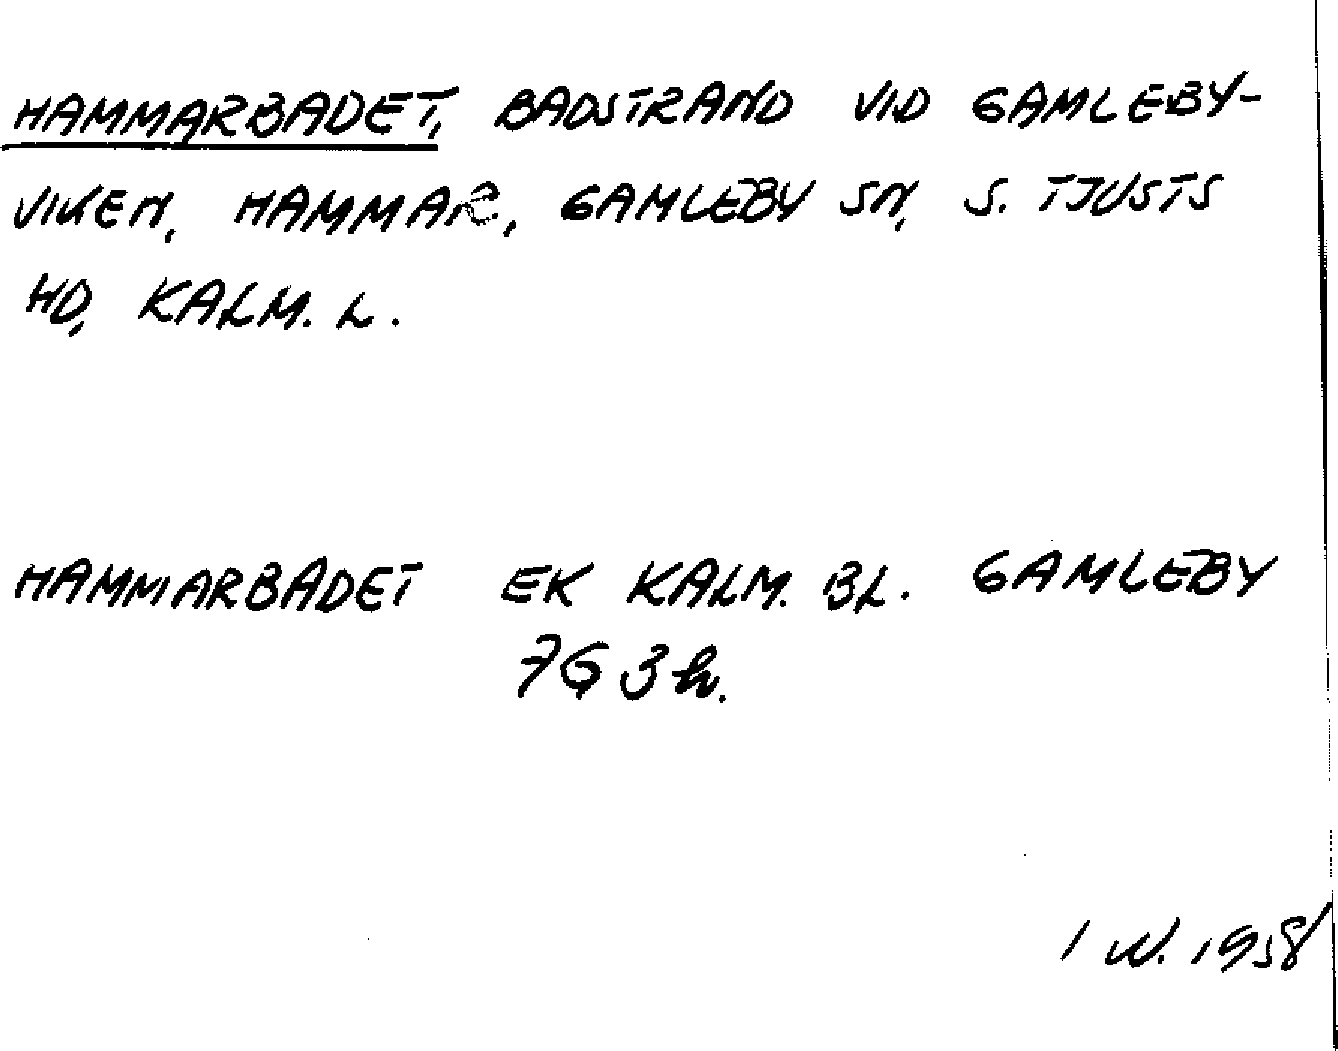 HAMMARBADET, BADSTRAND VID GAMLEBY-
VIKEN, HAMMAR, GAMLEBY SN, S. TJUSTS
HD, KALM. L.
HAMMARBADET EK KALM. BL. GAMLEBY
7G 3h.
I W. 1958